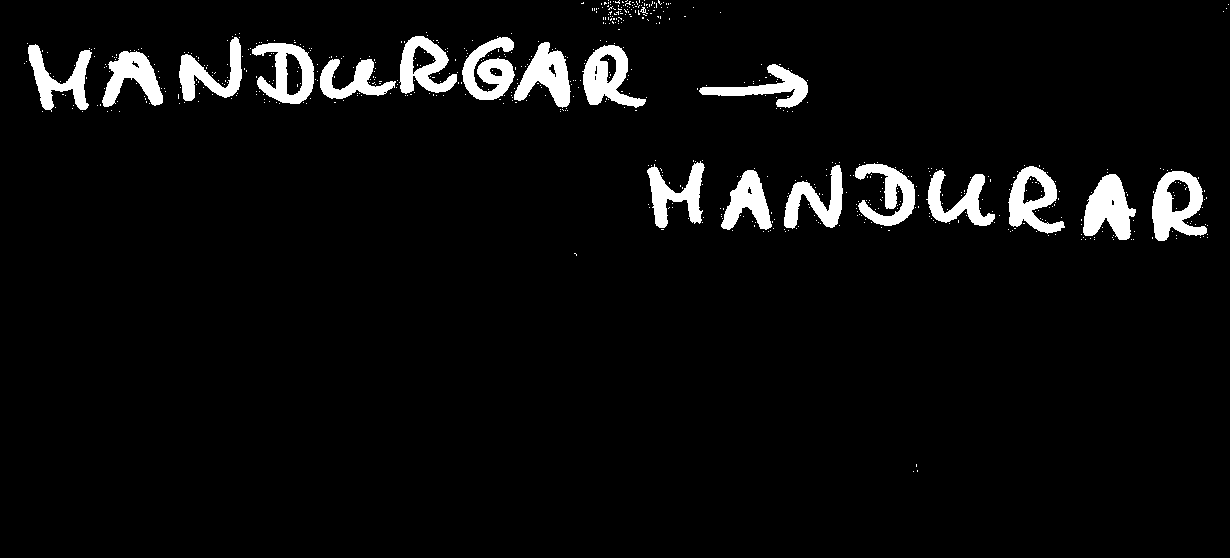 MANDURGAR →
MANDURAR